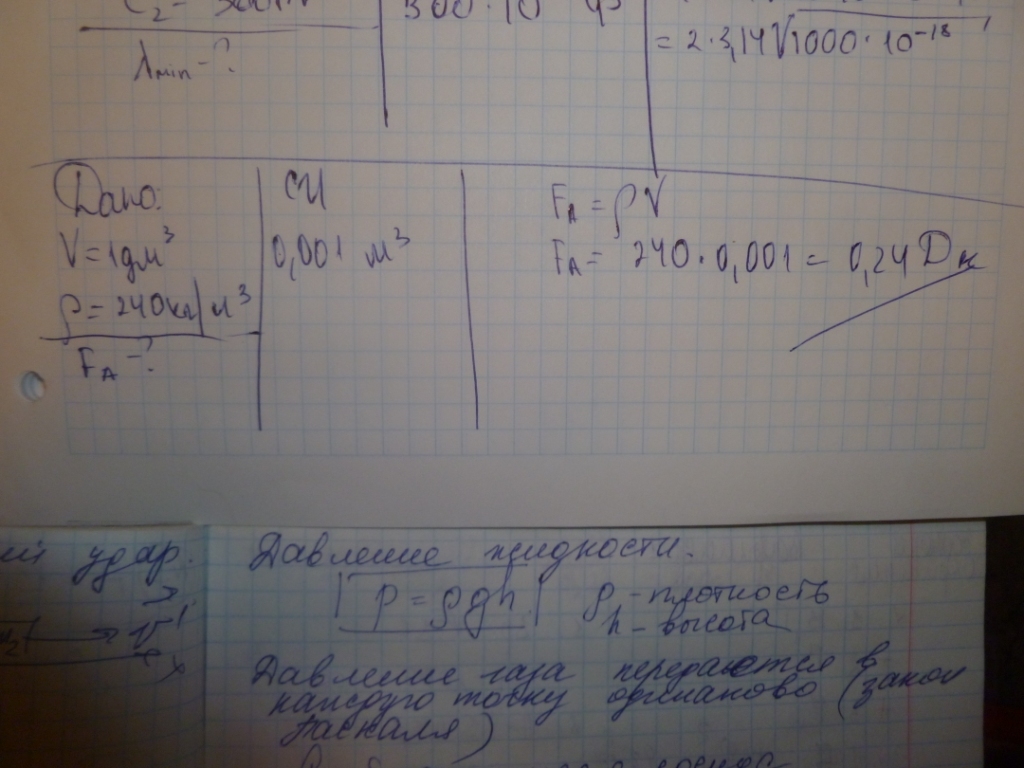 λmin - ?
= 2·3,14√1000·10⁻¹⁸
Дано:
V = 1дм³
ρ = 240кг/м³
Fₐ - ?
СИ
0,001 м³
Fₐ = ρV
Fₐ = 240·0,001 = 0,24 Дж
удар.
Давление жидкости.
p = ρgh
ρ - плотность
h - высота
Давление газа передаются в
каждую точку одинаково (закон
Паскаля)